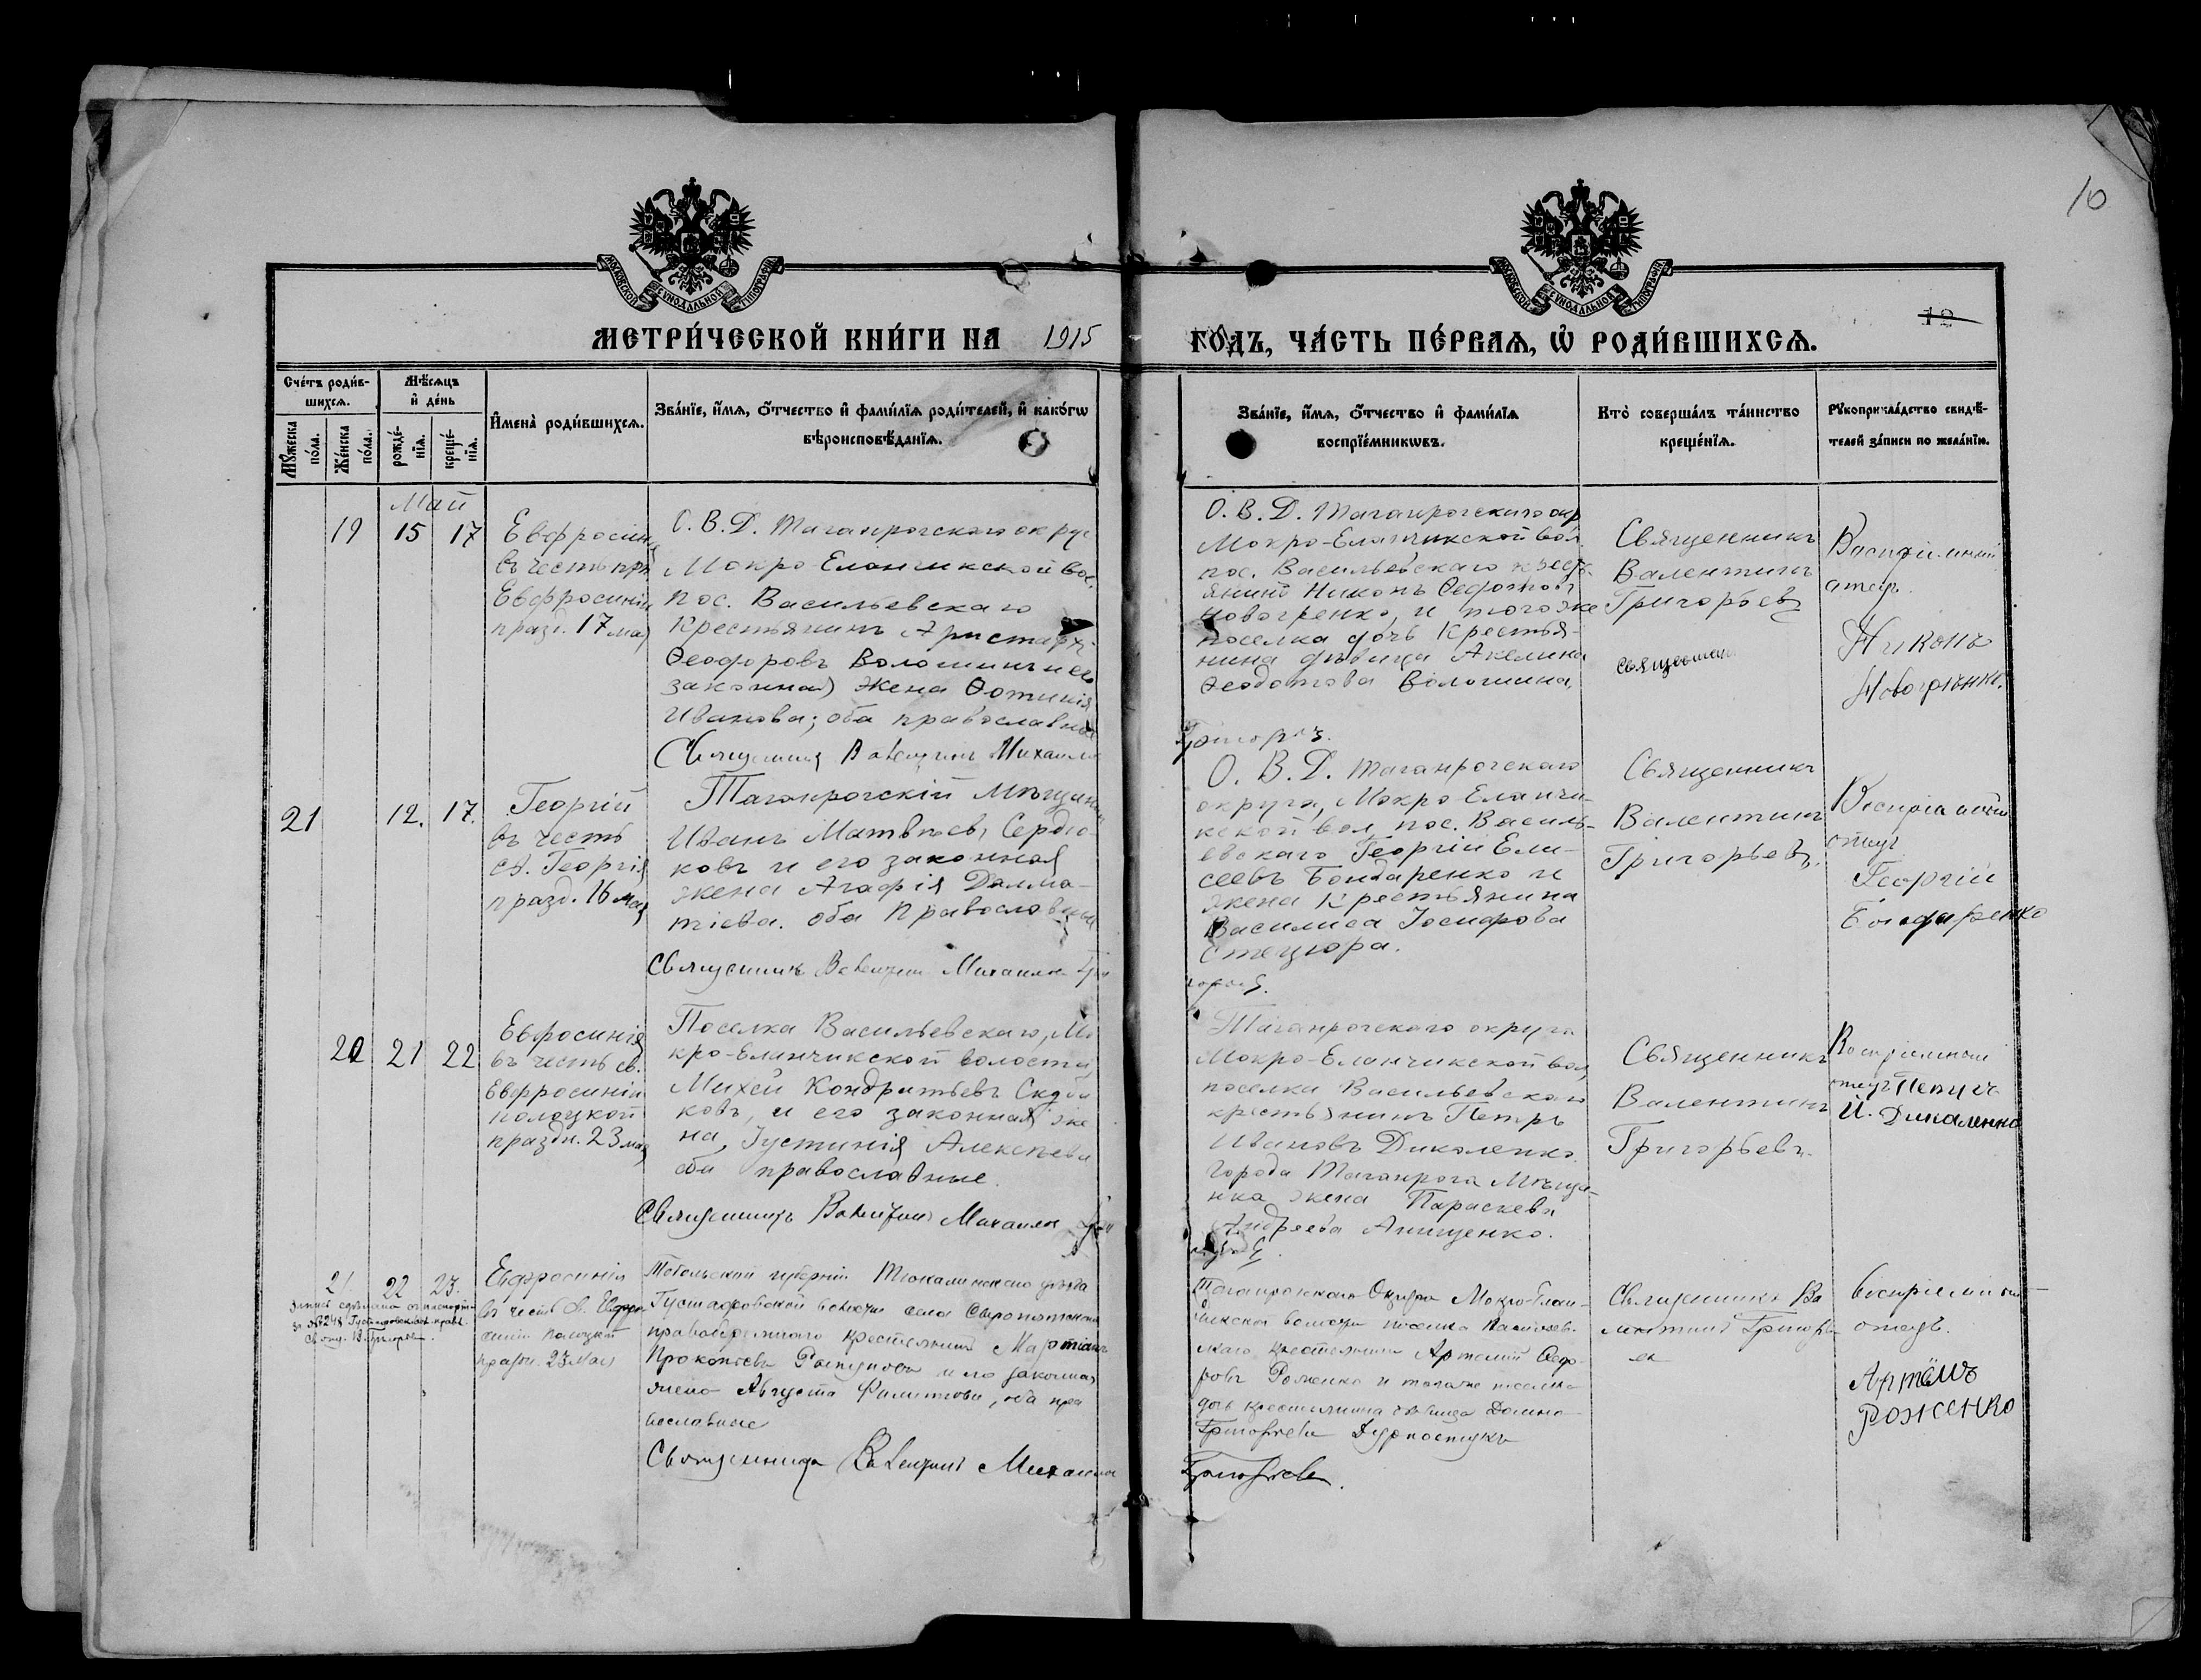 10
МОСКОВСКОЙ СѴНОДАЛЬНОЙ ТИПОГРАФІИ
МОСКОВСКОЙ СѴНОДАЛЬНОЙ ТИПОГРАФІИ
12
МЕТРИ́ЧЕСКОЙ КНИ́ГИ НА 1915 ГО́ДЪ, ЧА́СТЬ ПЕ́РВАѦ, Ѡ҆ РОДИ́ВШИХСѦ.
Сче́тъ роди́в-
шихсѧ.
Мꙋ́жеска
по́ла.
Же́нска
по́ла.
Мѣ́сѧцъ
и҆ де́нь
рожде́-
нїѧ.
креще́-
нїѧ.
И҆мена̀ роди́вшихсѧ.
Зва́нїе, и҆́мѧ, ѻ҆́тчество и҆ фами́лїѧ роди́телей, и҆ како́гѡ
вѣроисповѣ́данїѧ.
Зва́нїе, и҆́мѧ, ѻ҆́тчество и҆ фами́лїѧ
воспрїе́мникѡвъ.
Кто̀ соверша́лъ та́инство
креще́нїѧ.
Рꙋкоприкла́дство свидѣ́-
телей за́писи по жела́нїю.
Май
19 15 17
Евфросинія
въ честь прп
Евфросиніи
празд. 17 мая
О. В. Д. Таганрогскаго округ
Мокро-Еланчикской вол.
пос. Васильевскаго
крестьянинъ Аристархъ
Ѳеодоровъ Волошинъ и его
законная жена Ѳотинія
Иванова; оба православные
Священникъ Валентинъ Михаилов
О. В. Д. Таганрогскаго окр
Мокро-Еланчикской вол.
пос. Васильевскаго крест-
янинъ Никонъ Ѳедотовъ
Новогренко, и того же
поселка дочь Крестья-
нина дѣвица Акелина
Ѳеодотова Волошина.
Священникъ
Валентинъ
Григорьевъ
Воспріемный
отец
Никонъ
21 12. 17.
Георгій
въ честь
св. Георгія
празд. 16 мая
Таганрогскій Мѣщанинъ
Иванъ Матвѣевъ Сердю-
ковъ и его законная
жена Агафія Далма-
тіева. оба Православные
Священникъ Валентинъ Михаилов Гри
О. В. Д. Таганрогскаго
округа, Мокро Еланчи-
кской вол. пос. Василь-
евскаго Георгій Ели-
сеевъ Бондаренко и
жена Крестьянина
Василиса Іосифова
Стецюра.
Священникъ
Валентинъ
Григорьевъ.
отец
Георгій
Бондаренко
20 21 22
Евфросинія
въ честь св.
Евфросиніи
полоцкой
праздн. 23 мая
Поселка Васильевскаго, Мо
кро-Еланчикской волости,
Михей Кондратьевъ
ковъ, и его законная же
на, Іустинія Алексѣева
оба православные.
Священникъ Валентинъ Михаилов Гри
Таганрогскаго округа
Мокро-Еланчикской вол,
поселка Васильевскаго
крестьянинъ Петръ
Ивановъ Дикаленко.
города Таганрога Мѣща-
нка жена Параскева
Андреева Анищенко.
Священникъ
Валентинъ
Григорьевъ.
Воспріемный
отецъ
И. Дикаленко
21 22 23.
Евфросинія
въ честь св. Евфро
синіи Полоцкой
празд. 23 Мая
Тобольской губерніи Тюкалинскаго уѣзда
Густафовской волости села
крестьянина
Прокопьевъ и его законная
жена Августа оба пра
вославные
Священникъ Валентинъ Михаилов
Таганрогскаго Округа Мокро-Елан-
чикской волости поселка Васильев-
скаго крестьянинъ Артемій Ѳедо-
ровъ Роженко и того же поселка
дочь крестьянина дѣвица
Григорьева
Григорьевъ.
Священникъ Ва
лентинъ Григорь-
ев
Воспріемный
отецъ.
Артёмъ
Роженко